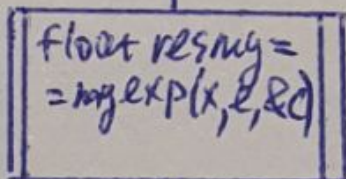 float resmy=
=myexp(x,e,&c)